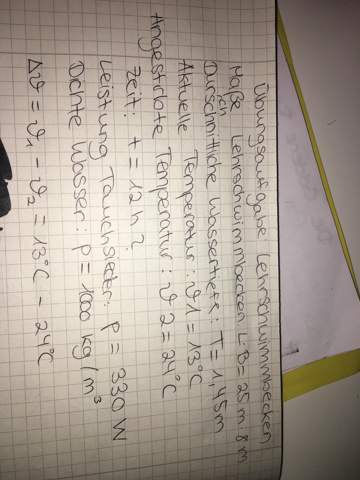 Übungsaufgabe Lehrschwimmbecken
Maße Lehrschwimmbecken L:B = 25 m : 8 m
Durschnittliche Wassertiefe : T = 1,45m
ich
Aktuelle Temperatur : ϑ1 = 13°C
Angestrebte Temperatur : ϑ2 = 24°C
Zeit: t = 12 h ?
Leistung Tauchsieder: P = 330 W
Dichte Wasser: ρ = 1000 kg/m³
Δϑ = ϑ1 - ϑ2 = 13°C - 24°C